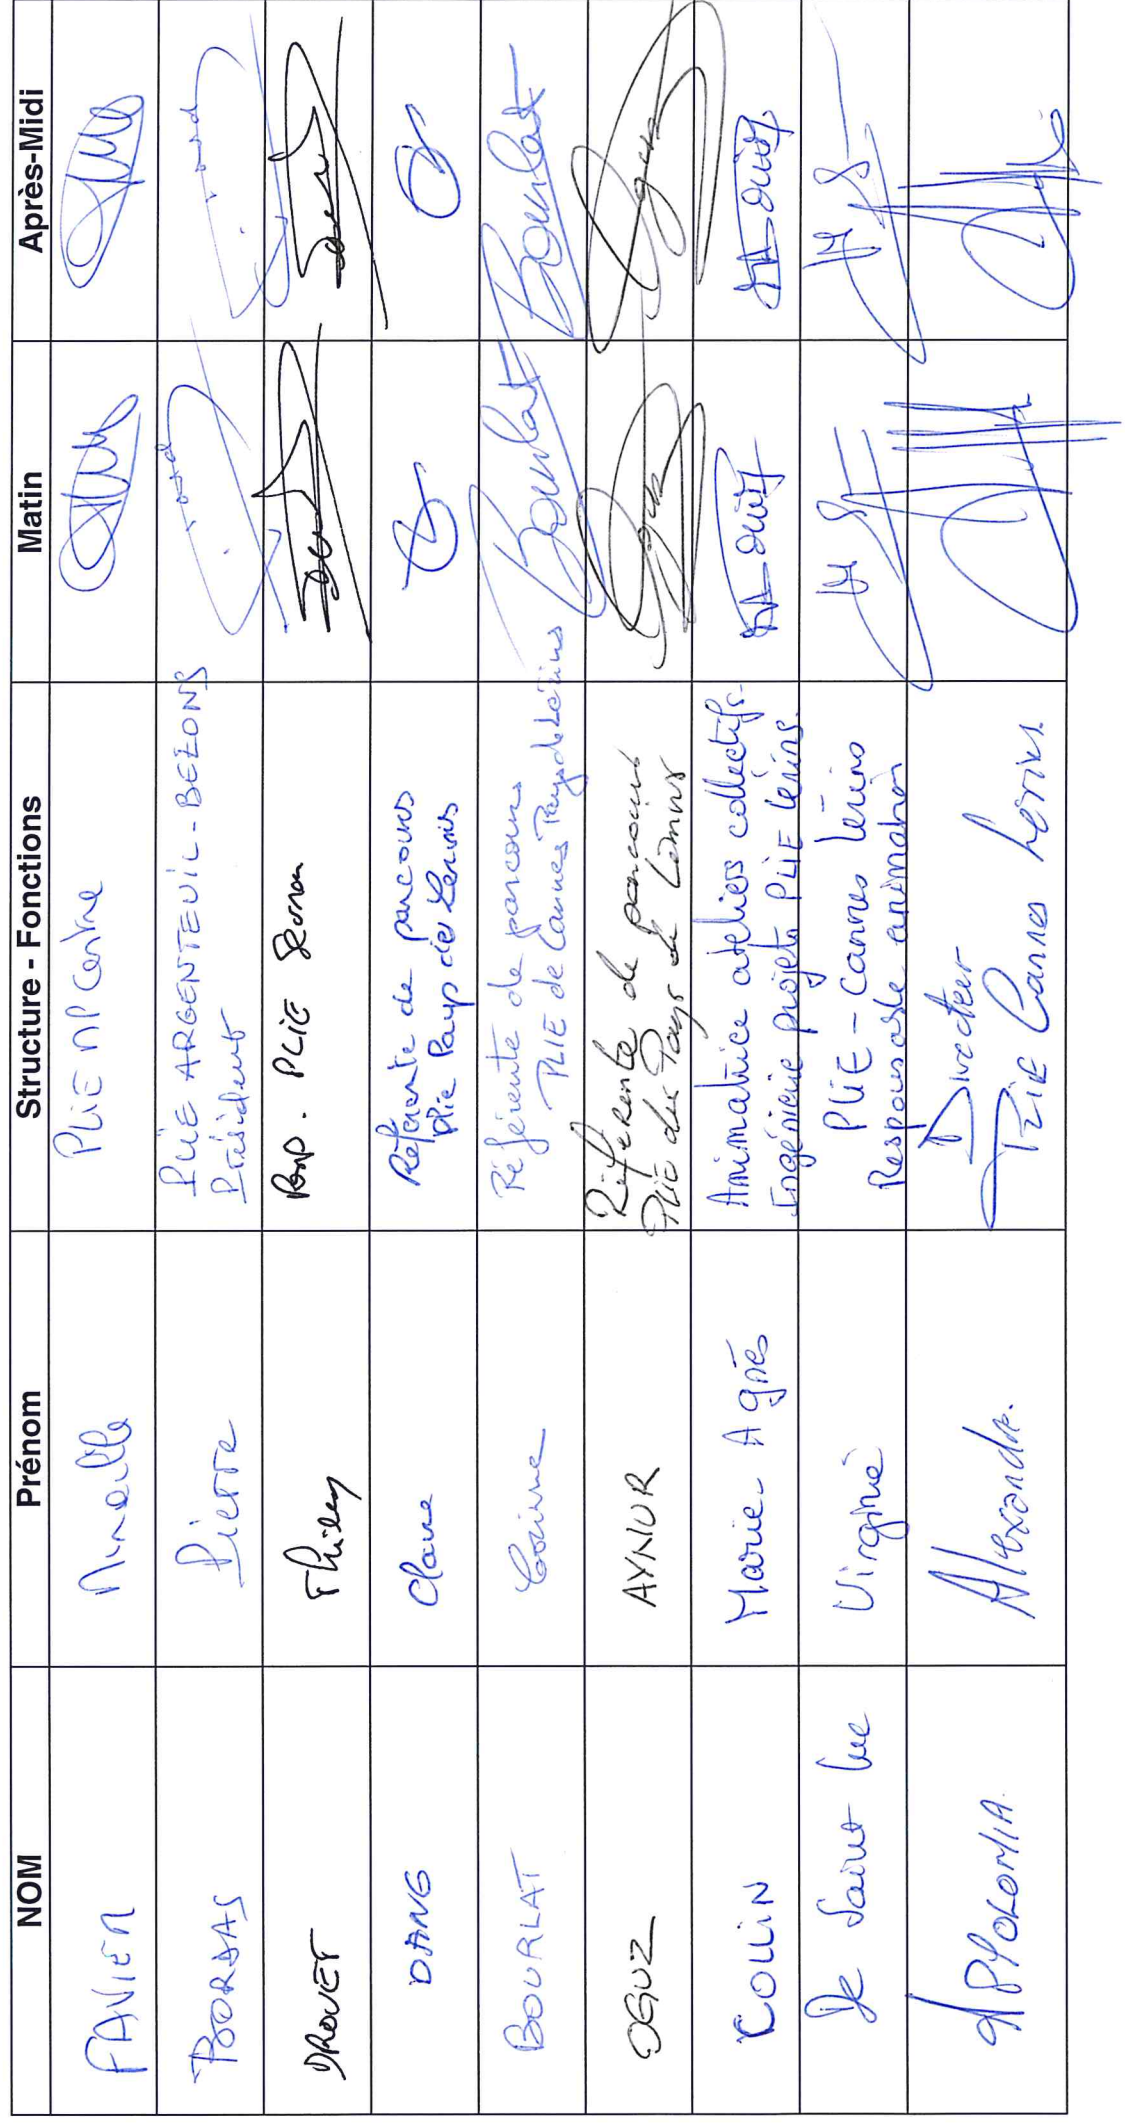 NOM Prénom Structure - Fonctions Matin Après-Midi
FAVIER Mireille PLIE MP Centre
BORDAS Pierre PLIE ARGENTEUIL-BEZONS
Président
DROUET Thierry Resp. PLIE
DANG Claire Référente de parcours
Plie Pays de Lérins
BOURLAT Corinne Référente de parcours Bourlat Bourlat
PLIE de Cannes Pays de Lérins
OGUZ AYNUR Référente de parcours
Plie des Pays de Lérins
COLLIN Marie-Agnès Animatrice ateliers collectifs.
Ingénierie projets PLIE Lérins.
De Saint Luc Virginie PLIE - Cannes Lérins
Responsable animation
APPOLONIA Alexandra. Directeur
PLIE Cannes Lérins